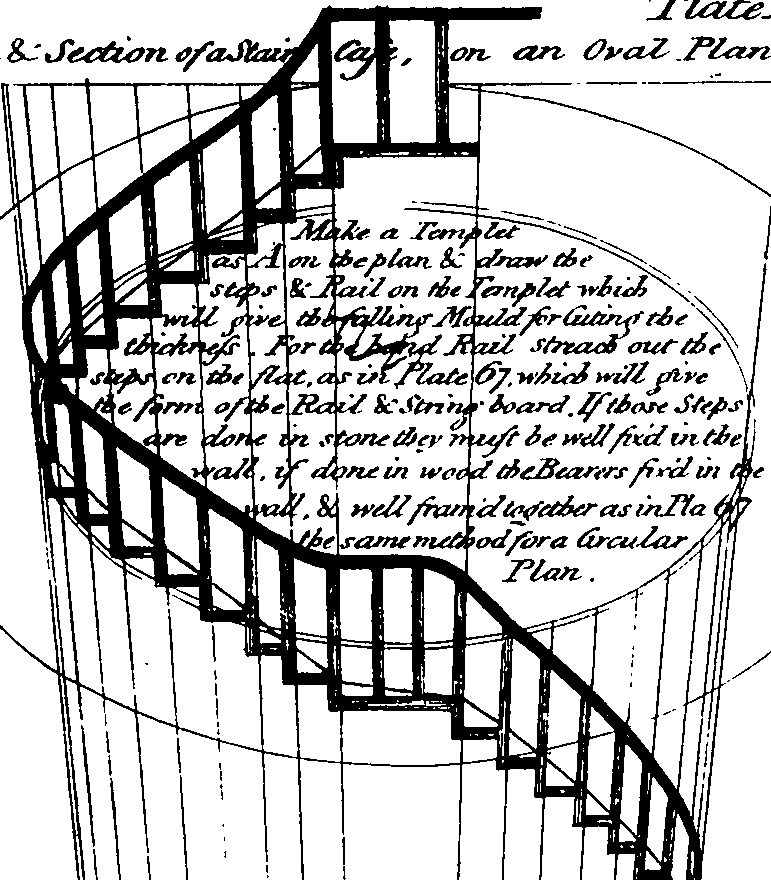 Plate
& Section of a Stair Case, on an Oval Plan
Make a Templet
as A on the plan & draw the
steps & Rail on the Templet which
will give the falling Mould for Cuting the
thickness. For the hand Rail streach out the
steps on the flat, as in Plate 67, which will give
the form of the Rail & String board. If those Steps
are done in stone they must be well fix'd in the
wall, if done in wood the Bearers fix'd in the
wall, & well fram'd together as in Pla 67
the same method for a Circular
Plan.